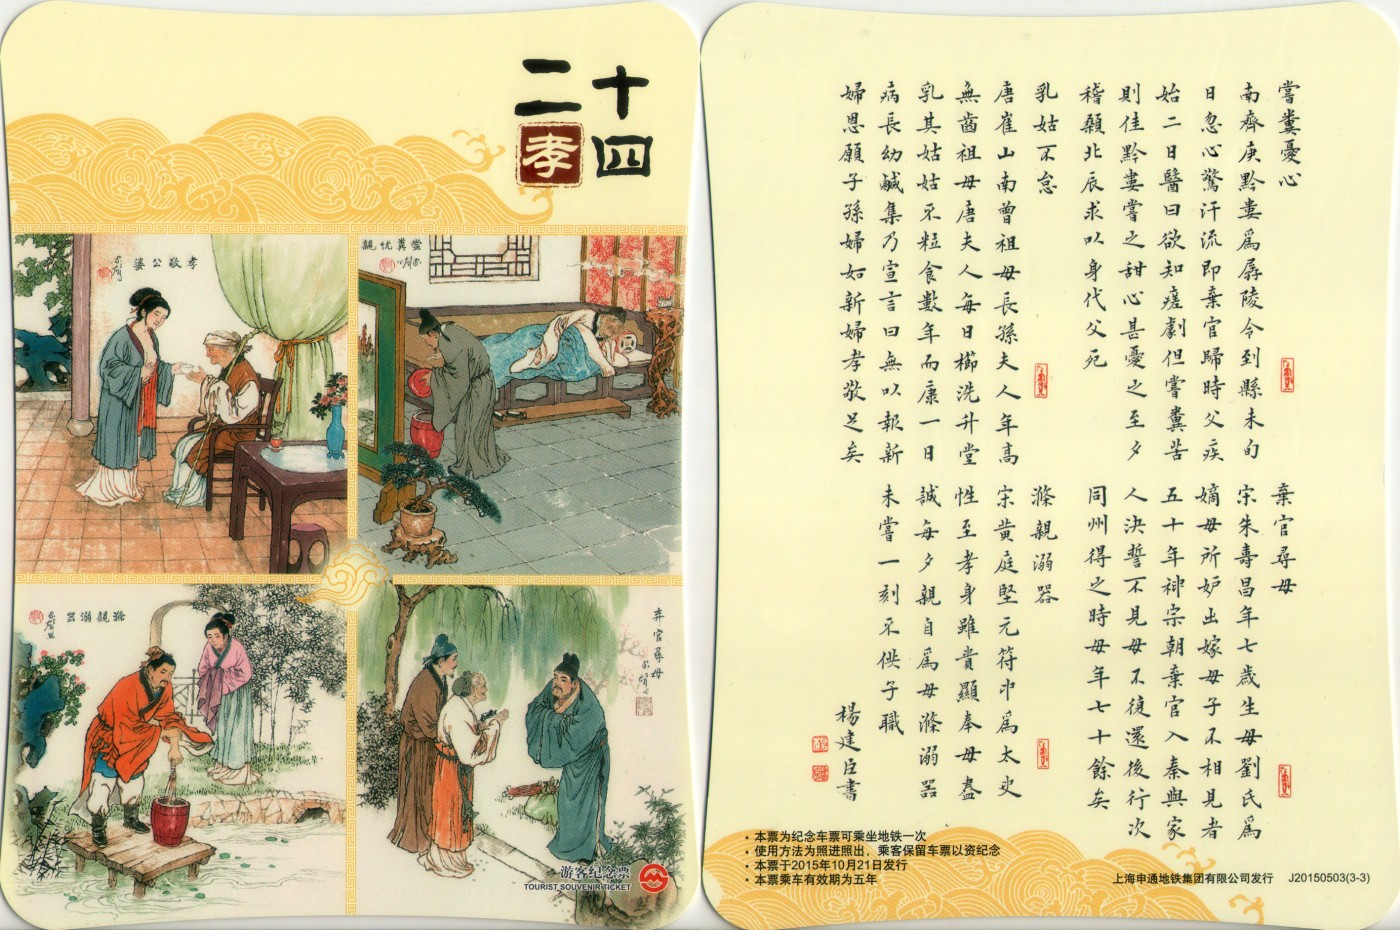 二十四孝
孝敬公婆
嘗糞忧親
滌親溺器
弃官尋母
游客纪念票
TOURIST SOUVENIR TICKET
嘗糞憂心
南齊庚黔婁爲孱陵令到縣未旬
日忽心驚汗流即棄官歸時父疾
始二日醫曰欲知瘥劇但嘗糞苦
則佳黔婁嘗之甜心甚憂之至夕
稽顙北辰求以身代父死
乳姑不怠
唐崔山南曾祖母長孫夫人年高
無齒祖母唐夫人每日櫛洗升堂
乳其姑姑不粒食數年而康一日
病長幼鹹集乃宣言曰無以報新
婦恩願子孫婦如新婦孝敬足矣
棄官尋母
宋朱壽昌年七歲生母劉氏爲
嫡母所妒出嫁母子不相見者
五十年神宗朝棄官入秦與家
人決誓不見母不復還後行次
同州得之時母年七十餘矣
滌親溺器
宋黃庭堅元符中爲太史
性至孝身雖貴顯奉母盡
誠每夕親自爲母滌溺器
未嘗一刻不供子職
楊建臣書
• 本票为纪念车票可乘坐地铁一次
• 使用方法为照进照出，乘客保留车票以资纪念
• 本票于2015年10月21日发行
• 本票乘车有效期为五年
上海申通地铁集团有限公司发行 J20150503(3-3)